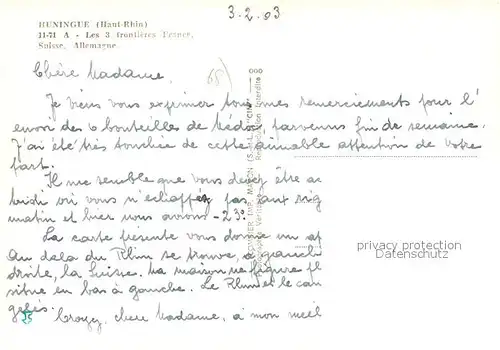 3.2.63
HUNINGUE (Haut-Rhin)
11-71 A - Les 3 frontières France,
Suisse, Allemagne
Chère Madame,
Je viens vous exprimer tous mes remerciements pour l'
envoi des 6 bouteilles de Médoc, parvenus fin de semaine.
J'ai été très touchée de cette aimable attention de votre
part.
Il me semble que vous devez être au
midi où vous n'échappez pas aux rig
matin et hier nous avions -23°.
La carte présente vous donne un ap
Au delà du Rhin se trouve, à gauche
droite, la Suisse. Ma maison ne figure p
située en bas à gauche. Le Rhin et le can
gelés.
Croyez, chère Madame, à mon meil
COMBIER IMP. MACON (S.-&-L.) "CIM"
Reproduction Interdite
privacy protection
Datenschutz